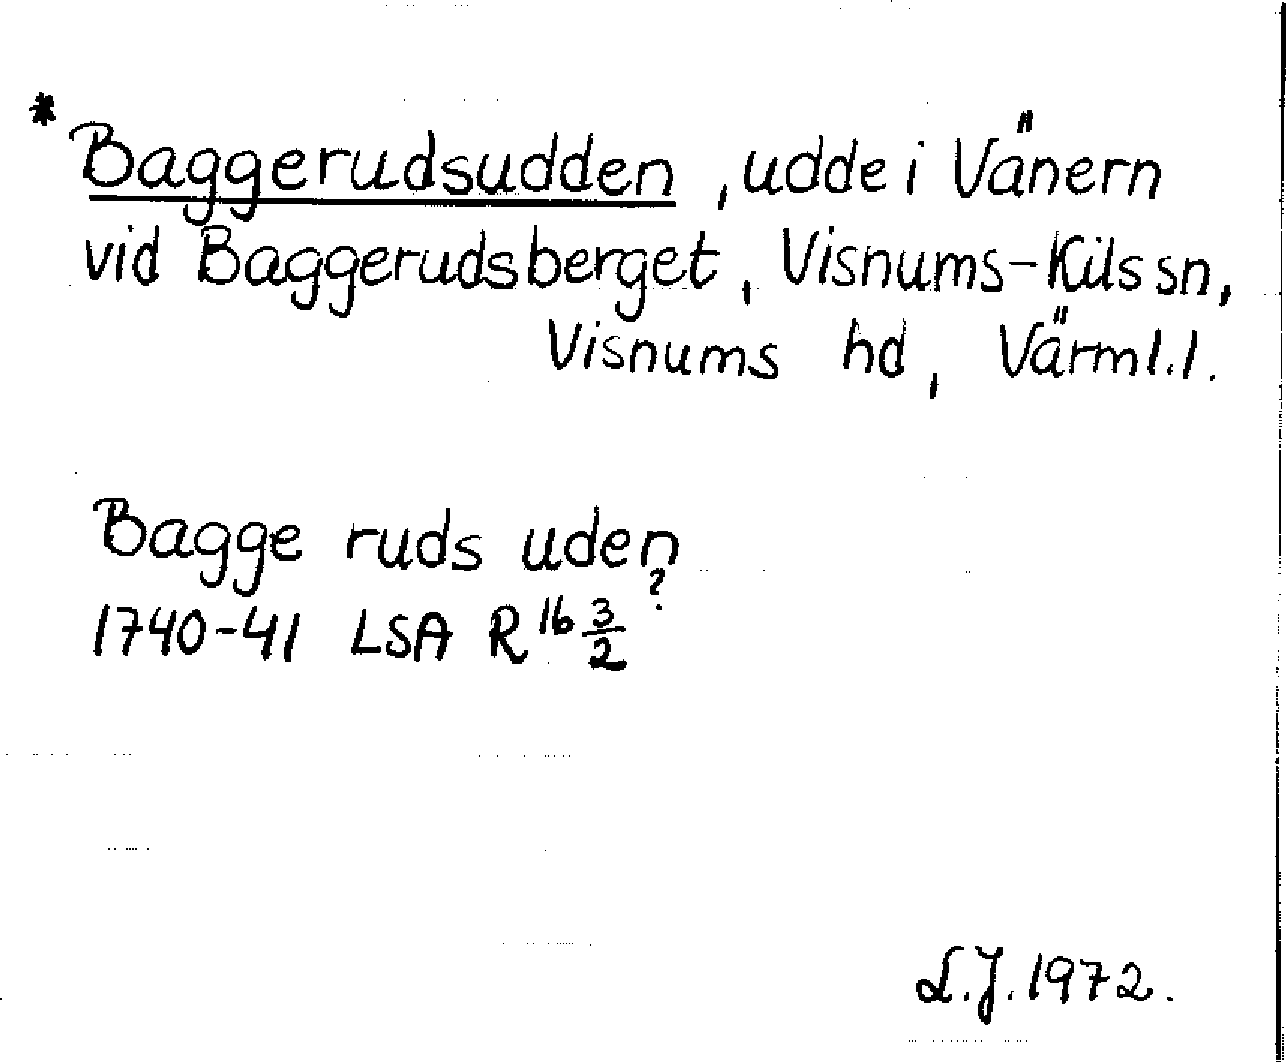 * Baggerudsudden, udde i Vänern
vid Baggerudsberget, Visnums-Kils sn,
Visnums hd, Värml.l.
Bagge ruds uden?
1740-41 LSA R 16 3/2
L.J. 1972.